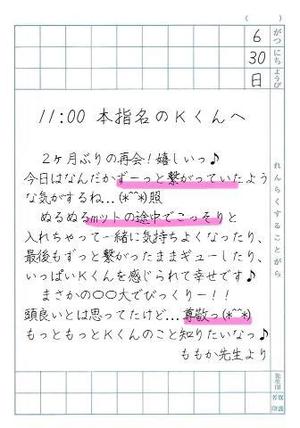 ( )
6 がつ
30 にち
日 ようび
れんらくすることがら
11:00 本指名のKくんへ
2ヶ月ぶりの再会！嬉しいっ♪
今日はなんだかずーっと繋がっていたよう
な気がするね…(*^^*)照
ぬるぬるmットの途中でこっそりと
入れちゃって一緒に気持ちよくなったり、
最後もずっと繋がったままギューしたり、
いっぱいKくんを感じられて幸せです♪
まさかの〇〇大でびっくりー！！
頭良いとは思ってたけど…尊敬っ(*^^*)
もっともっとKくんのこと知りたいなっ♪
ももか先生より
先生印